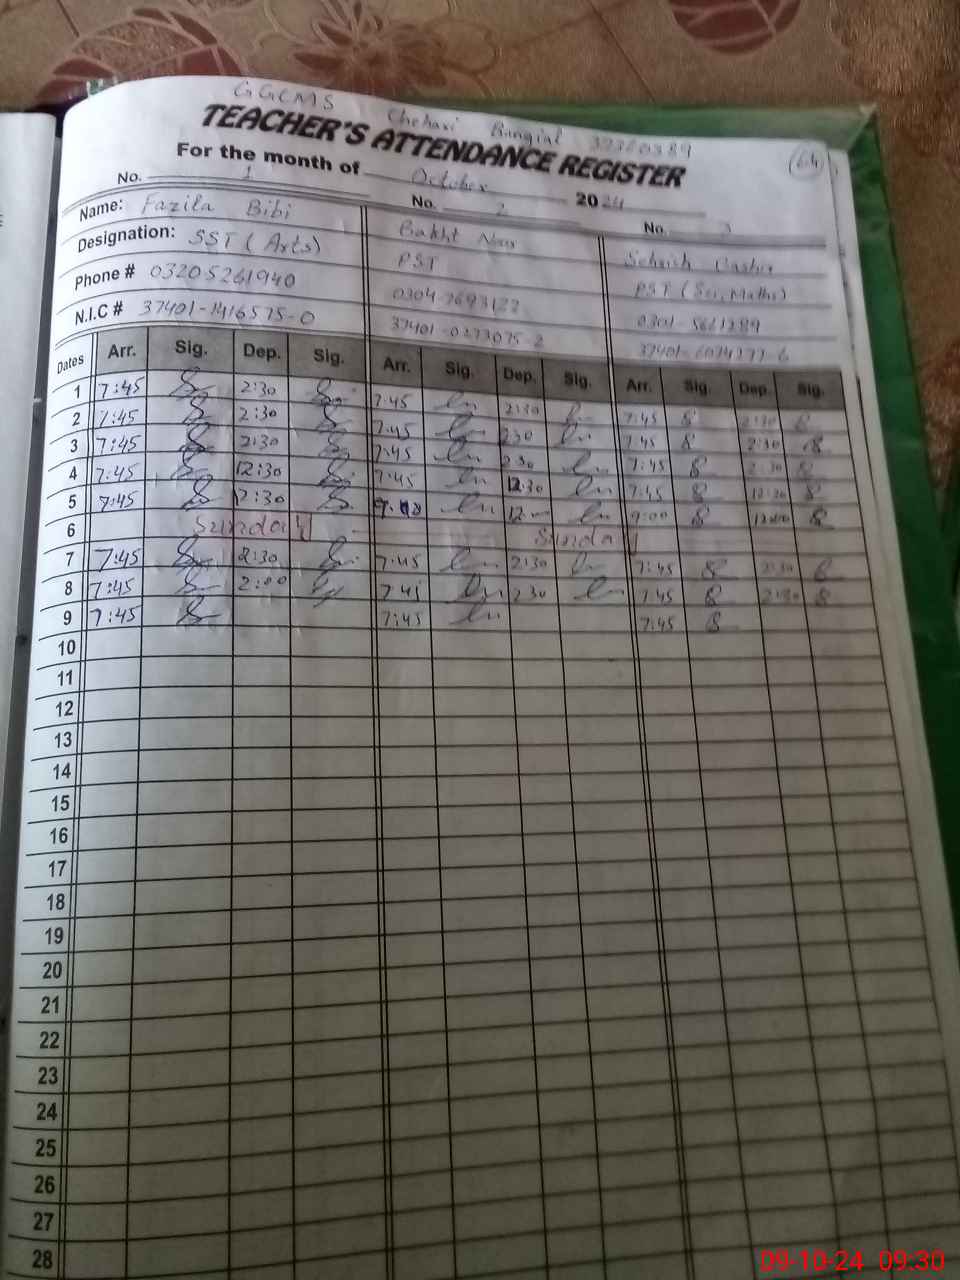 GGCMS Chehari Bangial 37310389
TEACHER'S ATTENDANCE REGISTER
64
For the month of October 2024
No. 1 No. 2 No. 3
Name: Fazila Bibi Bakht Sehrish
Designation: SST (Arts) PST PST (Sci, Maths)
Phone # 03205261940
N.I.C # 37401-1416575-0 37401-0273075-2
Dates Arr. Sig. Dep. Sig. Arr. Sig. Dep. Sig. Arr. Sig. Dep. Sig.
1 7:45 2:30 7:45 2:30 7:45 2:30
2 7:45 2:30 7:45 2:30 7:45 2:30
3 7:45 2:30 7:45 2:30 7:45 2:30
4 7:45 12:30 7:45 12:30 7:45 12:30
5 7:45 2:30 9:00
6 Sunday Sunday
7 7:45 2:30 7:45 2:30 7:45 2:30
8 7:45 2:00 7:45 2:30 7:45 2:30
9 7:45 7:45 7:45
10
11
12
13
14
15
16
17
18
19
20
21
22
23
24
25
26
27
28
09-10-24 09:30